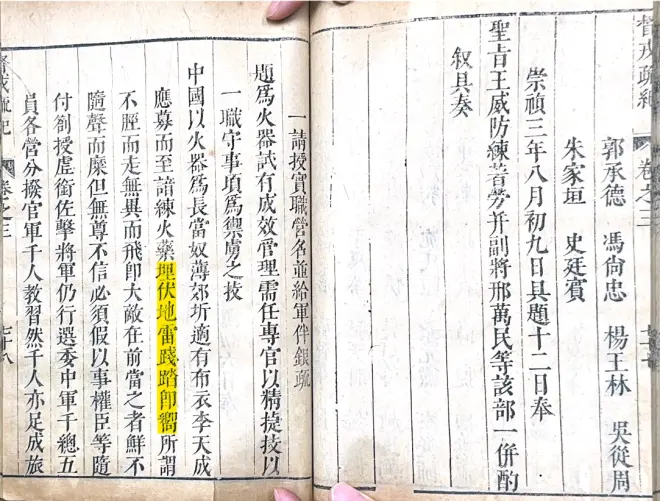 督戎疏紀 卷之三
郭承德 馮尚忠 楊王林 吳從周
朱家垣 史廷賓
崇禎三年八月初九日具題十二日奉
聖旨王威防練著勞并副將邢萬民等該部一併酌
叙具奏
一請授實職營名並給軍伴銀疏
題爲火器試有成效管理需任專官以精捷技以
一職守事項爲禦虜之技
中國以火器爲長當奴薄郊圻適有布衣李天成
應募而至諳練火藥埋伏地雷踐踏卽嚮所謂
不脛而走無異而飛卽大敵在前當之者鮮不
隨聲而靡但無尊不信必須假以事權臣等隨
付劄授虛銜佐擊將軍仍行選委中軍千總五
員各營分撥官軍千人教習然千人亦足成旅
督戎疏紀 卷之三 七十八